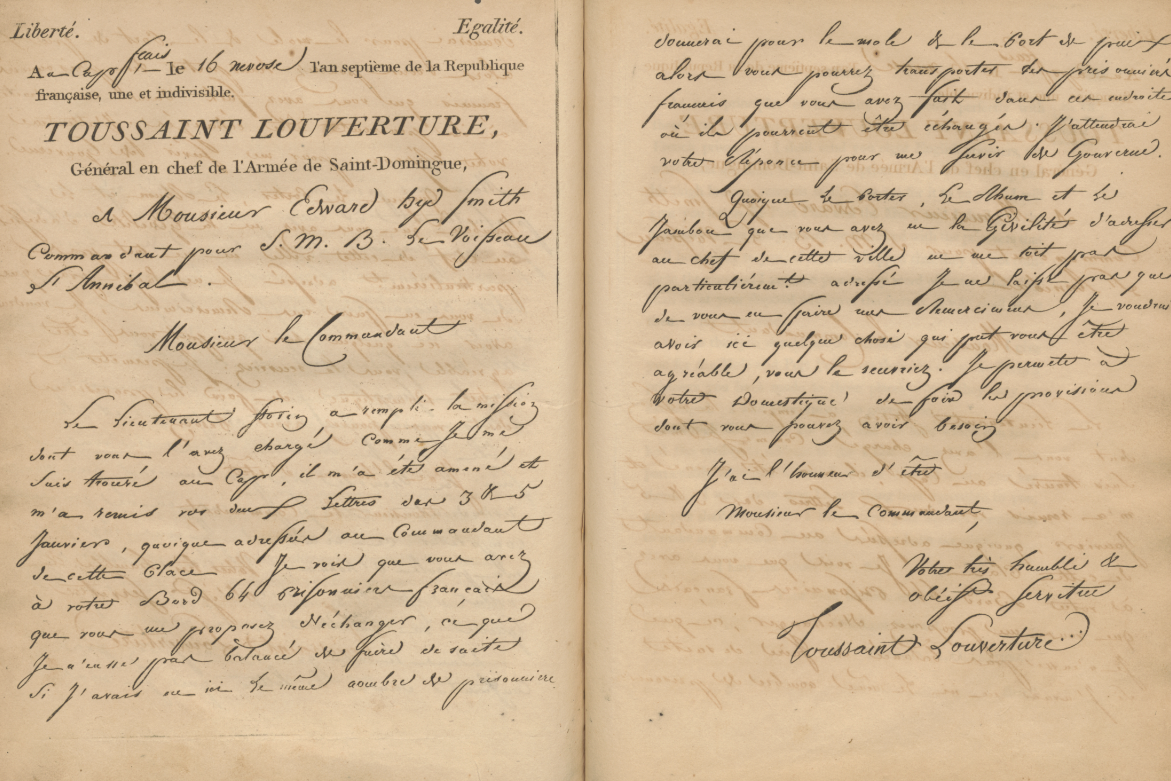 Liberté. Egalité.
Au Cap frais le 16 nivose l'an septième de la Republique
française, une et indivisible.
TOUSSAINT LOUVERTURE,
Général en chef de l'Armée de Saint-Domingue,
A Monsieur Edward hyd Smith
Commandant pour S. M. B. Le Voisseau
L'Annibal.
Monsieur le Commandant
Le Lieutenant a rempli la mission
dont vous l'avez chargé comme Je me
suis trouvé au Cap, il m'a été amené et
m'a remis vos deux Lettres des 3 & 5
Janvier, quoique adressées au Commandant
de cette Place Je vois que vous avez
à votre Bord 64 prisonniers français
que vous me proposez d'échanger, ce que
Je n'eusse pas balancé de faire de suite
Si J'avais eu ici Le même nombre de prisonniers
donnerai pour le mole & le Port de paix
alors vous pourrez transporter les prisonniers
français que vous avez dans ces endroits
où ils pourront être échangés. J'attendrai
votre Réponse pour me Servir de Gouverne.
Quoique Le Porter, Le Rhum et Le
Jambon que vous avez eu la Civilité d'adresser
au chef de cette ville ne me soit pas
particulièrem.t adressé Je ne laisse pas que
de vous en faire mes Remerciemens, Je voudrois
avoir ici quelque chose qui put vous être
agréable, vous le seuriez. Je permets à
Votre Domestique de faire les provisions
dont vous pouvez avoir besoin
J'ai l'honneur d'être
Monsieur le Commandant,
Votre très humble &
obéiss.t Serviteur
Toussaint Louverture